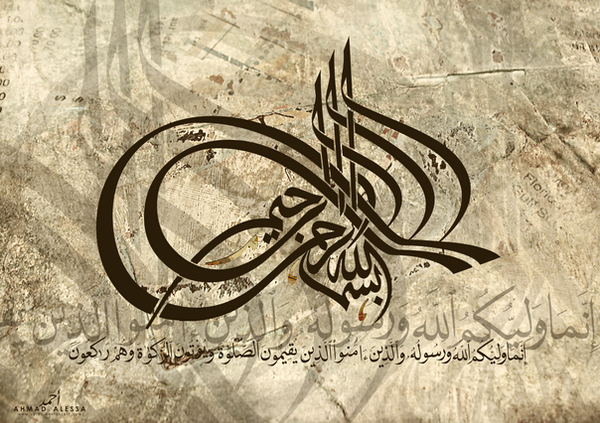 بسم الله الرحمن الرحيم
إنما وليكم الله ورسوله والذين ءامنوا الذين
إنما وليكم الله ورسوله والذين ءامنوا الذين يقيمون الصلوة ويؤتون الزكوة وهم راكعون
أحمد
AHMAD ALESSA